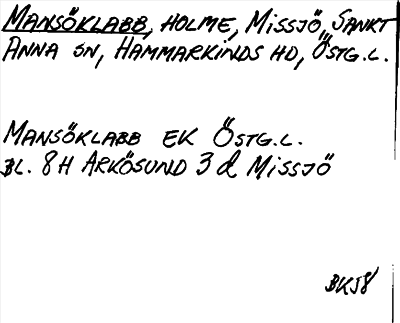 MANSÖKLABB, HOLME, MISSJÖ, SANKT
ANNA SN, HAMMARKINDS HD, ÖSTG.L.
MANSÖKLABB EK ÖSTG.L.
BL. 8H ARKÖSUND 3 d MISSJÖ
BKJ8